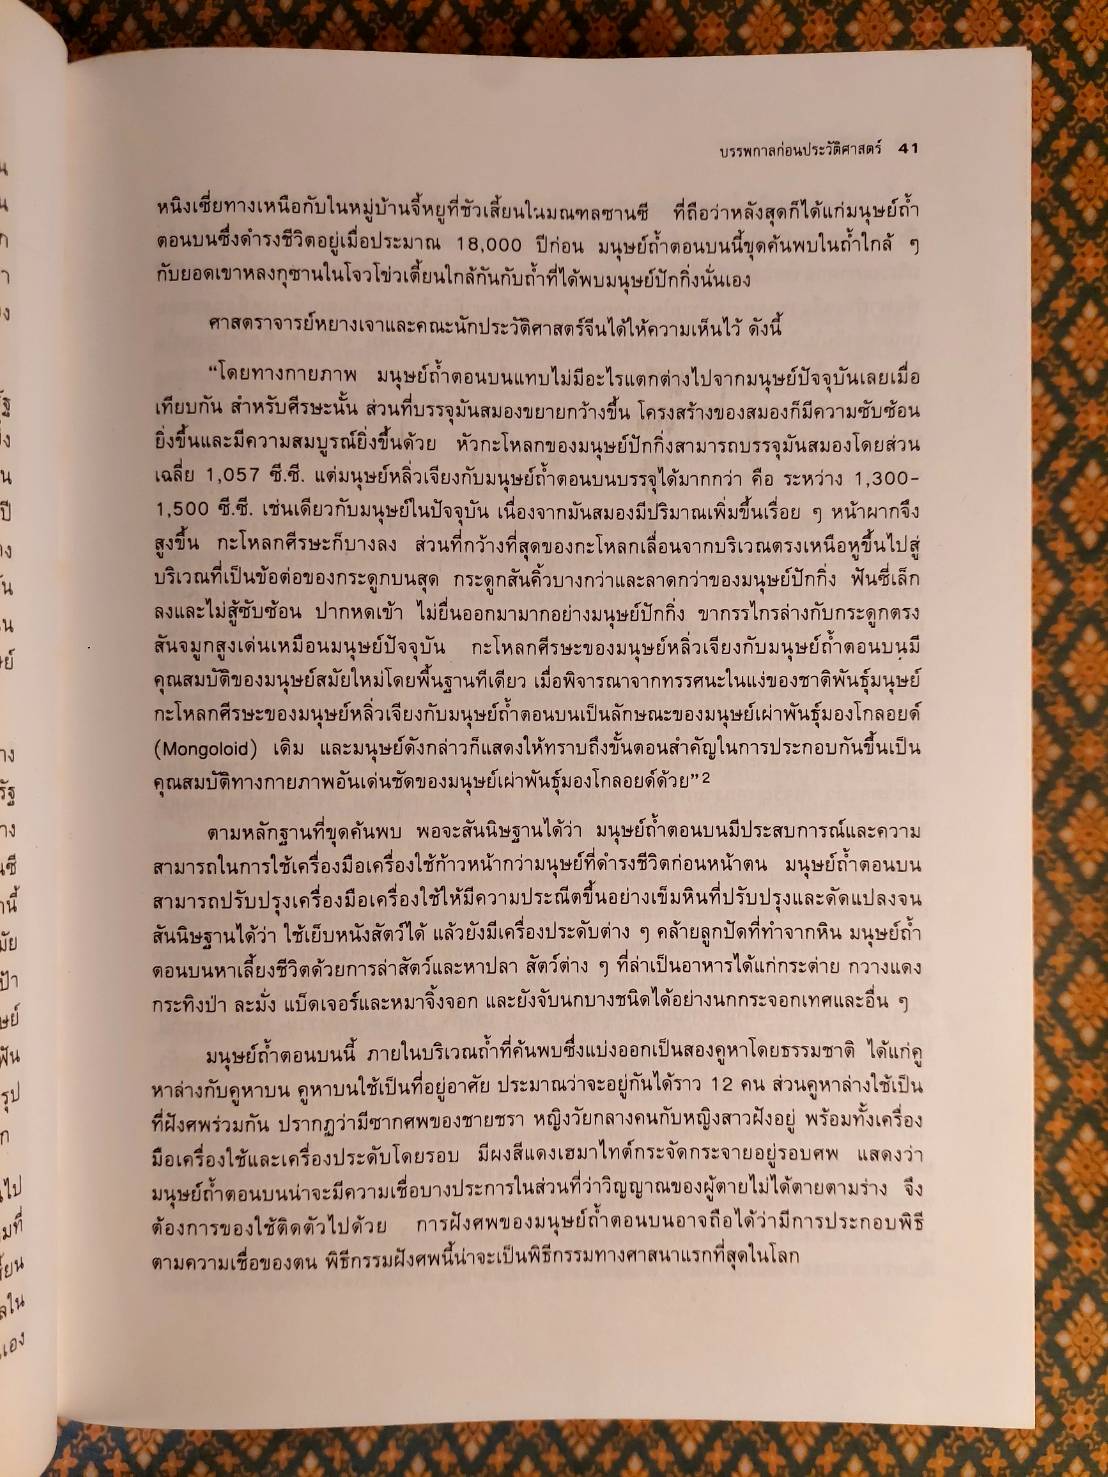 บรรพกาลก่อนประวัติศาสตร์ 41
หนิงเซี่ยทางเหนือกับในหมู่บ้านจี้หยูที่ชัวเสี้ยนในมณฑลซานซี ที่ถือว่าหลังสุดก็ได้แก่มนุษย์ถ้ำ
ตอนบนซึ่งดำรงชีวิตอยู่เมื่อประมาณ 18,000 ปีก่อน มนุษย์ถ้ำตอนบนนี้ขุดค้นพบในถ้ำใกล้ ๆ
กับยอดเขาหลงกุซานในโจวโข่วเตี้ยนใกล้กันกับถ้ำที่ได้พบมนุษย์ปักกิ่งนั่นเอง
ศาสตราจารย์หยางเจาและคณะนักประวัติศาสตร์จีนได้ให้ความเห็นไว้ ดังนี้
“โดยทางกายภาพ มนุษย์ถ้ำตอนบนแทบไม่มีอะไรแตกต่างไปจากมนุษย์ปัจจุบันเลยเมื่อ
เทียบกัน สำหรับศีรษะนั้น ส่วนที่บรรจุมันสมองขยายกว้างขึ้น โครงสร้างของสมองก็มีความซับซ้อน
ยิ่งขึ้นและมีความสมบูรณ์ยิ่งขึ้นด้วย หัวกะโหลกของมนุษย์ปักกิ่งสามารถบรรจุมันสมองโดยส่วน
เฉลี่ย 1,057 ซี.ซี. แต่มนุษย์หลิ่วเจียงกับมนุษย์ถ้ำตอนบนบรรจุได้มากกว่า คือ ระหว่าง 1,300-
1,500 ซี.ซี. เช่นเดียวกับมนุษย์ในปัจจุบัน เนื่องจากมันสมองมีปริมาณเพิ่มขึ้นเรื่อย ๆ หน้าผากจึง
สูงขึ้น กะโหลกศีรษะก็บางลง ส่วนที่กว้างที่สุดของกะโหลกเลื่อนจากบริเวณตรงเหนือหูขึ้นไปสู่
บริเวณที่เป็นข้อต่อของกระดูกบนสุด กระดูกสันคิ้วบางกว่าและลาดกว่าของมนุษย์ปักกิ่ง ฟันซี่เล็ก
ลงและไม่สู้ซับซ้อน ปากหดเข้า ไม่ยื่นออกมามากอย่างมนุษย์ปักกิ่ง ขากรรไกรล่างกับกระดูกตรง
สันจมูกสูงเด่นเหมือนมนุษย์ปัจจุบัน กะโหลกศีรษะของมนุษย์หลิ่วเจียงกับมนุษย์ถ้ำตอนบนมี
คุณสมบัติของมนุษย์สมัยใหม่โดยพื้นฐานทีเดียว เมื่อพิจารณาจากทรรศนะในแง่ของชาติพันธุ์มนุษย์
กะโหลกศีรษะของมนุษย์หลิ่วเจียงกับมนุษย์ถ้ำตอนบนเป็นลักษณะของมนุษย์เผ่าพันธุ์มองโกลอยด์
(Mongoloid) เดิม และมนุษย์ดังกล่าวก็แสดงให้ทราบถึงขั้นตอนสำคัญในการประกอบกันขึ้นเป็น
คุณสมบัติทางกายภาพอันเด่นชัดของมนุษย์เผ่าพันธุ์มองโกลอยด์ด้วย”2
ตามหลักฐานที่ขุดค้นพบ พอจะสันนิษฐานได้ว่า มนุษย์ถ้ำตอนบนมีประสบการณ์และความ
สามารถในการใช้เครื่องมือเครื่องใช้ก้าวหน้ากว่ามนุษย์ที่ดำรงชีวิตก่อนหน้าตน มนุษย์ถ้ำตอนบน
สามารถปรับปรุงเครื่องมือเครื่องใช้ให้มีความประณีตขึ้นอย่างเข็มหินที่ปรับปรุงและดัดแปลงจน
สันนิษฐานได้ว่า ใช้เย็บหนังสัตว์ได้ แล้วยังมีเครื่องประดับต่าง ๆ คล้ายลูกปัดที่ทำจากหิน มนุษย์ถ้ำ
ตอนบนหาเลี้ยงชีวิตด้วยการล่าสัตว์และหาปลา สัตว์ต่าง ๆ ที่ล่าเป็นอาหารได้แก่กระต่าย กวางแดง
กระทิงป่า ละมั่ง แบ็ดเจอร์และหมาจิ้งจอก และยังจับนกบางชนิดได้อย่างนกกระจอกเทศและอื่น ๆ
มนุษย์ถ้ำตอนบนนี้ ภายในบริเวณถ้ำที่ค้นพบซึ่งแบ่งออกเป็นสองคูหาโดยธรรมชาติ ได้แก่คู
หาล่างกับคูหาบน คูหาบนใช้เป็นที่อยู่อาศัย ประมาณว่าจะอยู่กันได้ราว 12 คน ส่วนคูหาล่างใช้เป็น
ที่ฝังศพร่วมกัน ปรากฏว่ามีซากศพของชายชรา หญิงวัยกลางคนกับหญิงสาวฝังอยู่ พร้อมทั้งเครื่อง
มือเครื่องใช้และเครื่องประดับโดยรอบ มีผงสีแดงเฮมาไทต์กระจัดกระจายอยู่รอบศพ แสดงว่า
มนุษย์ถ้ำตอนบนน่าจะมีความเชื่อบางประการในส่วนที่ว่าวิญญาณของผู้ตายไม่ได้ตายตามร่าง จึง
ต้องการของใช้ติดตัวไปด้วย การฝังศพของมนุษย์ถ้ำตอนบนอาจถือได้ว่ามีการประกอบพิธี
ตามความเชื่อของตน พิธีกรรมฝังศพนี้น่าจะเป็นพิธีกรรมทางศาสนาแรกที่สุดในโลก